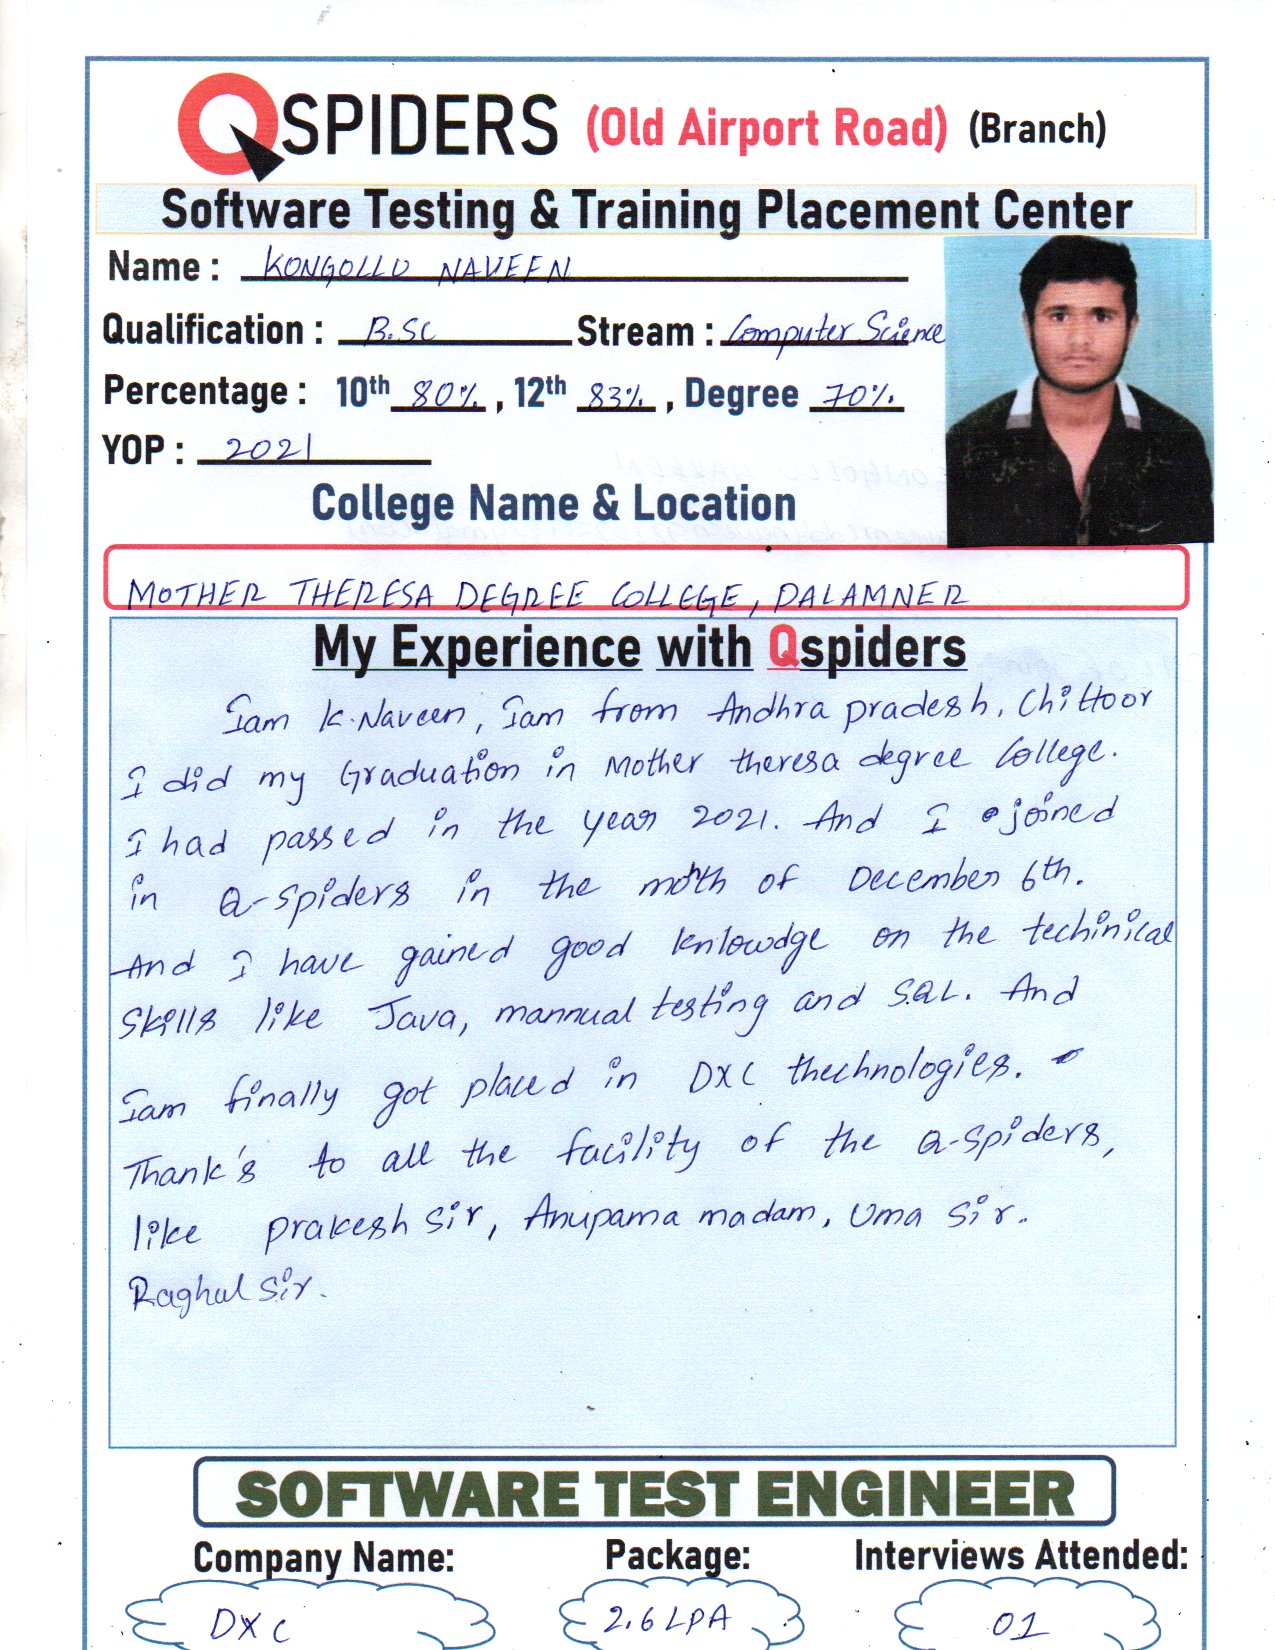 QSPIDERS (Old Airport Road) (Branch)
Software Testing & Training Placement Center
Name : KONGOLLU NAVEEN
Qualification : B.SC Stream : Computer Science
Percentage : 10th 80% , 12th 83% , Degree 70%
YOP : 2021
College Name & Location
MOTHER THERESA DEGREE COLLEGE, PALAMNER
My Experience with Qspiders
Iam K.Naveen, Iam from Andhra pradesh, Chittoor
I did my Graduation in Mother theresa degree College.
I had passed in the year 2021. And I joined
in Q-spiders in the month of December 6th.
And I have gained good knlowdge on the techinical
skills like Java, mannual testing and SQL. And
Iam finally got placed in DXC thechnologies.
Thank's to all the facility of the Q-spiders,
like prakesh sir, Anupama madam, Uma sir.
Raghul sir.
SOFTWARE TEST ENGINEER
Company Name: Package: Interviews Attended:
DXC 2.6 LPA 01